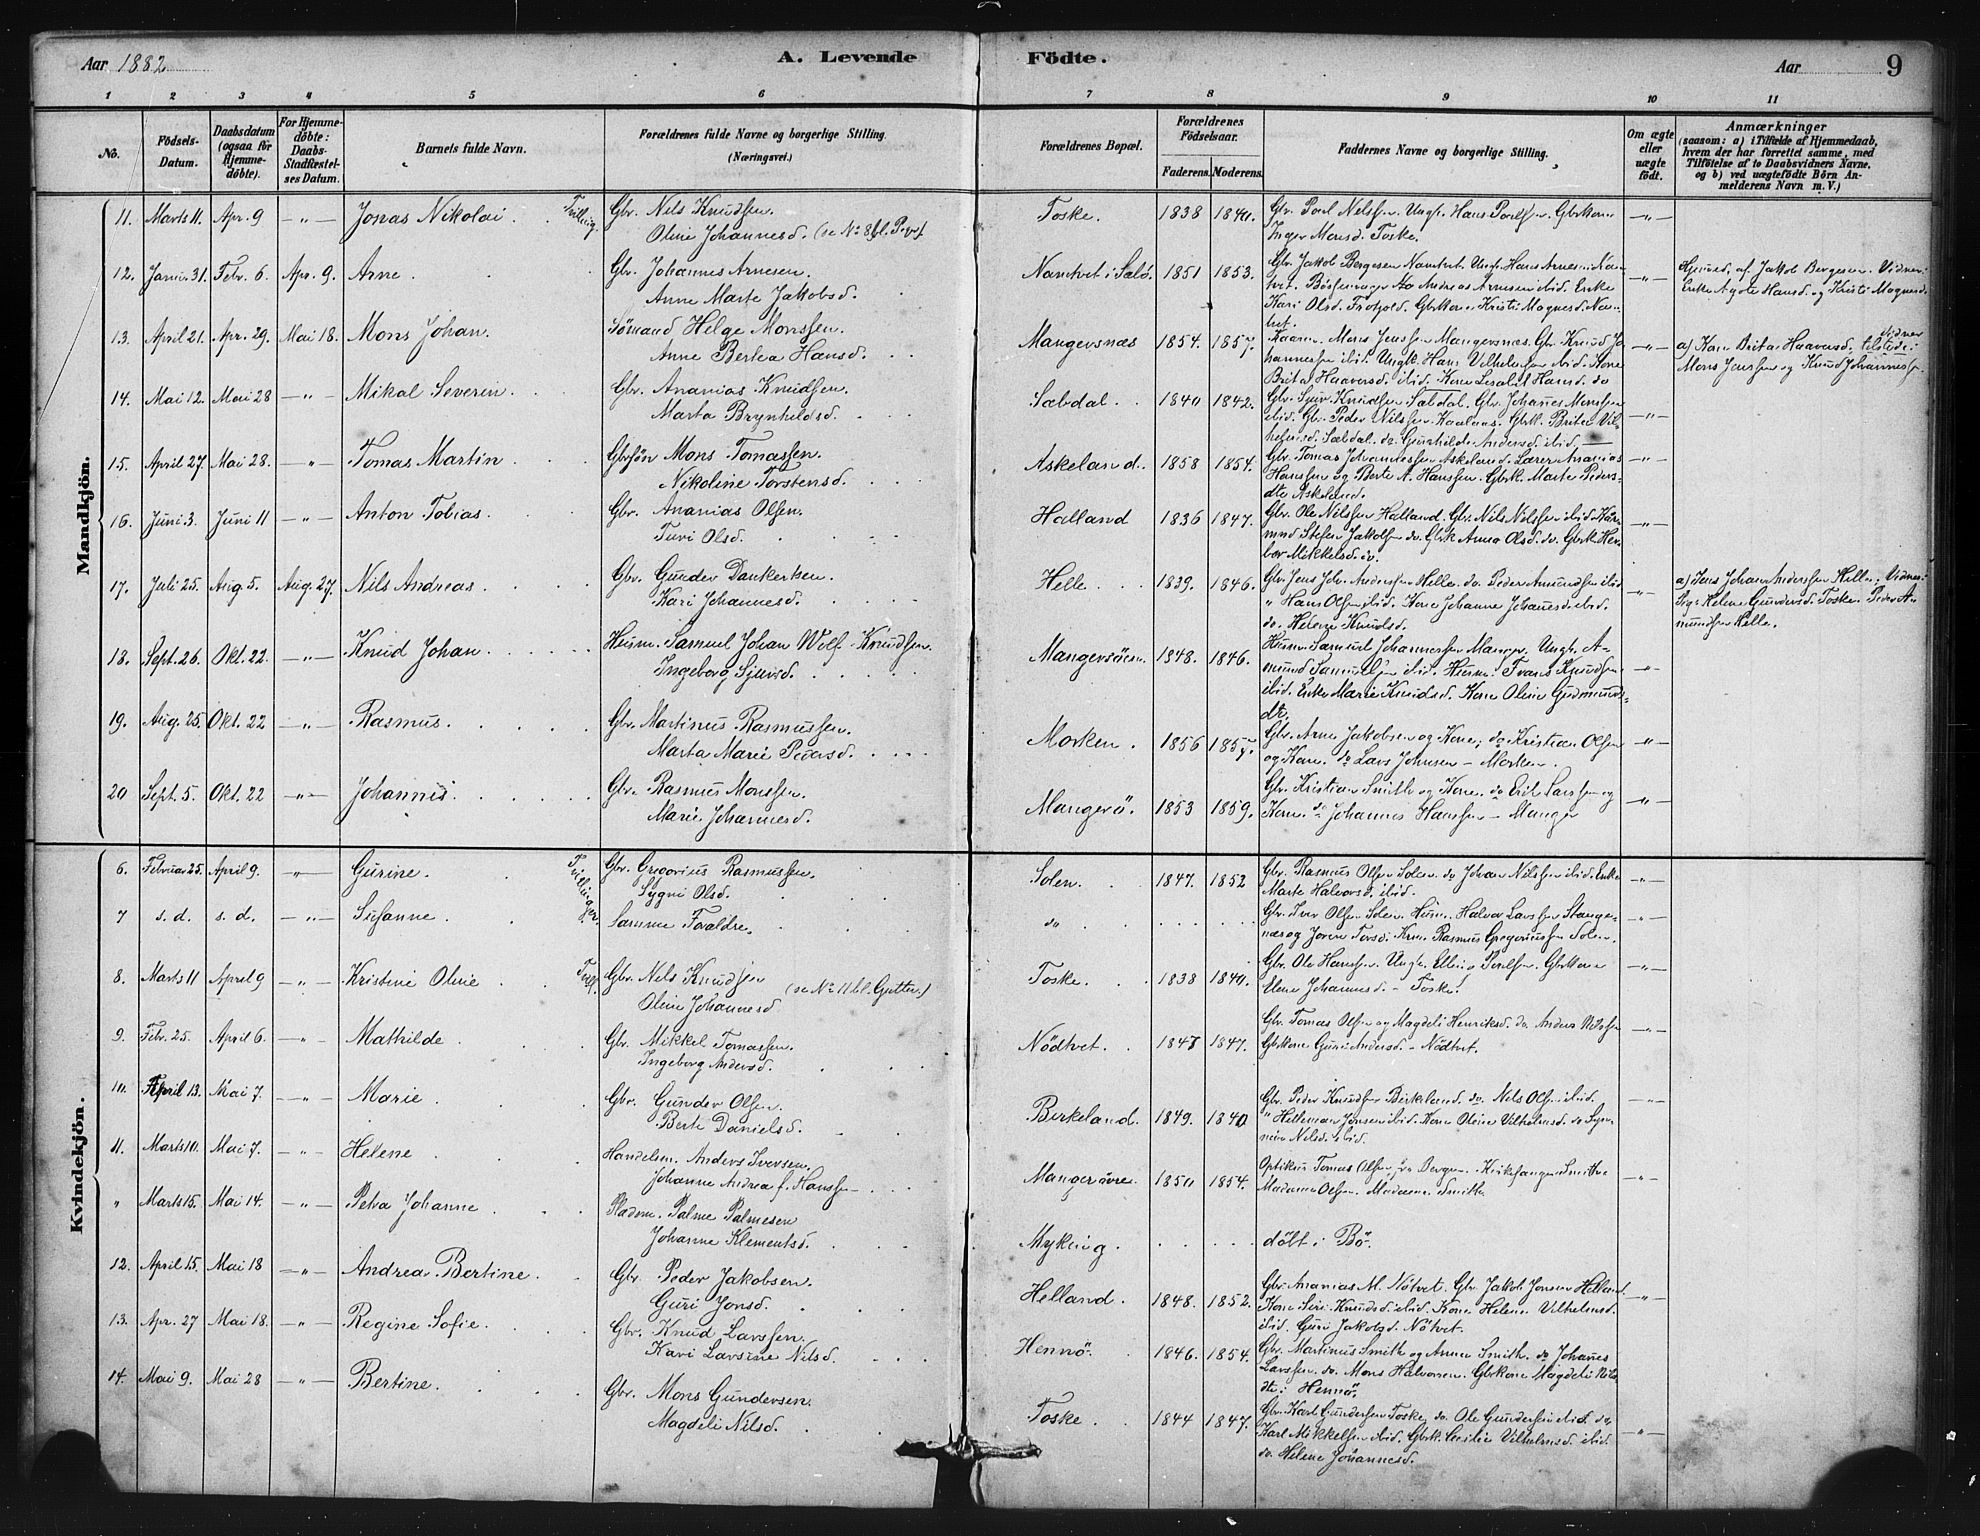 Aar 1882 A. Levende Födte. Aar 9
1 2 3 4 5 6 7 8 9 10 11
No. Födsels-Datum. Daabsdatum (ogsaa för Hjemmedöbte). For Hjemmedöbte: Daabs-Stadfæstelses Datum. Barnets fulde Navn. Forældrenes fulde Navne og borgerlige Stilling. (Næringsvei.) Forældrenes Bopæl. Forældrenes Födselsaar. Faderens. Moderens. Faddernes Navne og borgerlige Stilling. Om ægte eller uægte födt. Anmærkninger (saasom: a) i Tilfælde af Hjemmedaab, hvem der har forrettet samme, med Tilföielse af to Daabsvidners Navne, og b) ved uægtefödte Börn Anmelderens Navn m. V.)
Mandkjön.
11. Marts 11. Apr. 9 -"- Jonas Nikolai. Tvilling. Gbr. Nils Knudsen. Toske. 1838 1840. Gbr. Poul Nelssen. Ungk. Hans Poulsen. Gbrkone -"-
Oline Johannesd. (se No 8 bl. Piger) Inger Monsd. Toske.
12. Januar 31. Febr. 6. Apr. 9. Arne. Gbr. Johannes Arnesen. Namtvet i Sælö. 1851 1853. Gbr. Jakob Bergesen Namtvet. Ungk. Hans Arnesen -"- Hjemmed. af Jakob Bergesen. Vidner:
Anne Marte Jakobsd. Andreas Arnesen ibid. Enke Enke Agote Hansd. og Kristi Magnesd.
Kari Olsd. Gbrkone Kristi Magnesd.
13. April 21. Apr. 29. Mai 18. Mons Johan. Sömand Helge Monssen. Mangersnæs 1854. 1857. Mons Jenssen Mangersnæs. Gbr. Knud Jo- -"- a) Kone Brita Haaversd. Vidner tilstede:
Anne Bertea Hansd. hannessen ibid. Ungk. Hans Vilhelmsen ibid. Kone Mons Jenssen og Knud Johannessen.
Brita Haaversd. ibid. Kone Hansd. do
14. Mai 12. Mai 28 -"- Mikal Severin. Gbr. Ananias Knudsen. Sæbdal. 1840 1842. Gbr. Knudsen Sæbdal. Gbr. Johannes Monssen -"-
Marta Brynhildsd. ibid. Gbr. Peder Nilssen Gbrk. Brita Vil-
Sæbdal. do. Gunhilde Andersd. ibid.
15. April 27. Mai 28. -"- Tomas Martin Gbrsön Mons Tomassen. Askeland. 1858 1854. Gbr. Tomas Johannessen Askeland. Lærer Ananias -"-
Nikoline Torstensd. Hanssen og Berte A. Hanssen. Gbrk. Marte Peders-
dtr Askeland.
16. Juni 3. Juni 11 -"- Anton Tobias. Gbr. Ananias Olsen. Halland 1836 1847. Gbr. Ole Nilssen Halland. Gbr. Nils Nilssen ibid. -"-
Turi Olsd. Stefen Jakobsen do. Gbrk Anna Olsd. do. Gbrk. Her-
bor Mikkelsd. do.
17. Juli 25. Aug 5. Aug. 27. Nils Andreas. Gbr. Gunder Dankertsen. Helle. 1839. 1846. Gbr. Jens Joh. Anderssen Helle. do. Peder Amundsen ibid -"- a) Jens Johan Anderssen Helle. Vidner:
Kari Johannesd. " Hans Olsen ibid. Kone Johanne Johannesd. ibid. Pige Helene Gundersd. Toske. Peder A-
do. Helene Knudsd. mundsen Helle.
18. Sept. 26. Okt. 22. -"- Knud Johan. Husm. Samuel Johan Wolf Knudsen. Mangersöen. 1848. 1846. Husm. Samuel Johannessen Manger. Ungk. A- -"-
Ingeborg Sjursd. mund Samuelsen ibid. Husm. Frans Knudsen
ibid. Enke Marie Knudsd. Kone Oline Gudmunds-
dtr.
19. Aug. 25. Okt. 22 -"- Rasmus. Gbr. Martinus Rasmussen. Morken. 1856 1857. Gbr. Arne Jakobsen og Kone, do Kristian Olsen -"-
Marta Marie Pedersd. og Kone. do Lars Johnsen - Morken.
20 Sept. 5. Okt. 22 -"- Johannes. Gbr. Rasmus Monssen. Mangerö. 1853 1859. Gbr. Kristian Smith og Kone. do Erik Larssen og -"-
Marie Johannesd. Kone. do Johannes Hanssen - Manger
Kvindekjön.
6. Februar 25. April 9. -"- Gurine. Tvillinger. Gbr. Gregorius Rasmussen. Solen. 1847. 1852 Gbr. Rasmus Olsen Solen. do Johan Nilssen ibid. Enke -"-
Sygni Olsd. Marte Halvorsd. ibid.
7 s. d. s. d. -"- Susanne. Samme Foraldre. do Gbr. Iver Olsen Solen. Husm. Halvor Larssen Stange- -"-
næs og Joren Torsd. Rasmus Gregoriussen Solen.
8. Marts 11 April 9 -"- Kristine Oline Tvill. Gbr. Nils Knudsen Toske. 1838 1840. Gbr. Ole Hanssen. Ungk. Elling Poulsen. Gbrkone -"-
Oline Johannesd (se No 11 bl. Gutter.) Johannesd. - Toske.
9. Febr. 25. April 6. -"- Mathilde Gbr. Mikkel Tomassen. Nödtvet. 1847 1847. Gbr. Tomas Olsen og Magdeli Henriksd. do. Anders Nilssen -"-
Ingeborg Andersd. Gbrkone Guri Andersd. - Nödtvet.
10. April 13. Mai 7. -"- Marie. Gbr. Gunder Olsen. Birkeland. 1849. 1840 Gbr. Peder Knudsen Birkeland. do. Nils Olsen ibid. -"-
Berte Danielsd. " Helleman Jonsen ibid. Kone Oline Vilhelmsd. do Syn-
Nilsd. ibid.
11. Marts 10. Mai 7. -"- Helene Handelsm. Anders Iversen. Mangeröre. 1850 1854. Optikus Tomas Olsen fra Bergen. Kirkesanger Smith -"-
Johanne Andrea f. Hanssen Madame Olsen. Madame Smith.
" Marts 15. Mai 14. -"- Petra Johanne Pladsm. Palme Palmesen Myking. döbt i Bö.
Johanne Klementsd.
12. April 15. Mai 18 -"- Andrea Bertine. Gbr. Peder Jakobsen. Helland. 1848. 1852. Gbr. Ananias M. Nötvet. Gbr. Jakob Jonsen Helland. -"-
Guri Jonsd. Kone Siri Knudsd. ibid. Kone Helene Vilhelmsd.
ibid. Guri Jakobsd. Nötvet.
13. Apr. 27 Mai 18. -"- Regine Sofie. Gbr. Knud Larssen. Hennö. 1846. 1854. Gbr. Martinus Smith og Anna Smith. do Johannes
Kari Larsine Nilsd. Larssen. do. Mons Halvorsen. Gbrkone Magdeli Nils-
dtr: Hennö.
14. Mai 9. Mai 28 -"- Bertine. Gbr. Mons Gundersen. Toske. 1844 1847. Gbr. Karl Gundersen Toske, do. Ole Gundersen ibid. do -"-
Magdeli Nilsd. Karl Mikkelsen ibid. Gbrk. Cecilie Vilhelmsd. ibid.
do. Helene Johannesd.